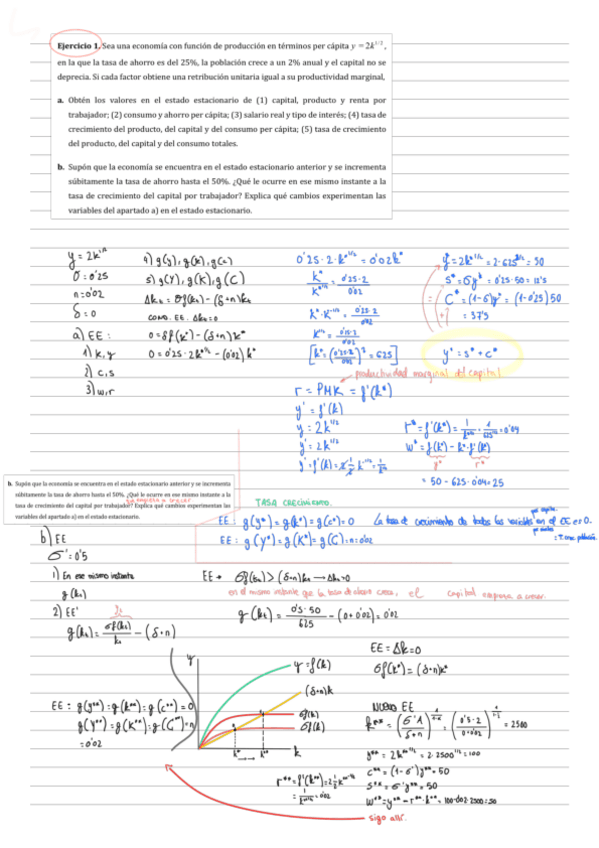 Ejercicio 1. Sea una economía con función de producción en términos per cápita y = 2k^1/2,
en la que la tasa de ahorro es del 25%, la población crece a un 2% anual y el capital no se
deprecia. Si cada factor obtiene una retribución unitaria igual a su productividad marginal,
a. Obtén los valores en el estado estacionario de (1) capital, producto y renta por
trabajador; (2) consumo y ahorro per cápita; (3) salario real y tipo de interés; (4) tasa de
crecimiento del producto, del capital y del consumo per cápita; (5) tasa de crecimiento
del producto, del capital y del consumo totales.
b. Supón que la economía se encuentra en el estado estacionario anterior y se incrementa
súbitamente la tasa de ahorro hasta el 50%. ¿Qué le ocurre en ese mismo instante a la
tasa de crecimiento del capital por trabajador? Explica qué cambios experimentan las
variables del apartado a) en el estado estacionario.
y = 2k^1/2
σ = 0'25
n = 0'02
δ = 0
a) EE:
1) k, y
2) c, s
3) w, r
4) g(y), g(k), g(c)
5) g(Y), g(K), g(C)
Δkt = σf(kt) - (δ+n)kt
COMO. EE. Δkt = 0
0 = σf(k*) - (δ+n)k*
0 = 0'25·2k*^1/2 - (0'02)k*
0'25·2·k*^1/2 = 0'02k*
k*/k*^1/2 = 0'25·2/0'02
k*·k*^-1/2 = 0'25·2/0'02
k*^1/2 = 0'25·2/0'02
[k* = (0'25·2/0'02)^2 = 625]
y* = 2k*^1/2 = 2·625^1/2 = 50
s* = σy* = 0'25·50 = 12'5
C* = (1-σ)y* = (1-0'25)50
= 37'5
y* = s* + c*
productividad marginal del capital
r = PMK = f'(k*)
y' = f'(k)
y = 2k^1/2
y' = 2k^1/2
y' = f'(k) = 2·1/2 k^-1/2 = 1/k^1/2
r* = f'(k*) = 1/k*^1/2 = 1/625^1/2 = 0'04
w* = f(k*) - k*·f'(k*)
y* r*
= 50 - 625·0'04 = 25
b. Supón que la economía se encuentra en el estado estacionario anterior y se incrementa
súbitamente la tasa de ahorro hasta el 50%. ¿Qué le ocurre en ese mismo instante a la
tasa de crecimiento del capital por trabajador? Explica qué cambios experimentan las
variables del apartado a) en el estado estacionario.
TASA CRECIMIENTO.
EE: g(y*) = g(k*) = g(c*) = 0 La tasa de crecimiento de todas las variables en el EE es 0.
EE: g(Y*) = g(K*) = g(C*) = n = 0'02
b) EE
σ' = 0'5
1) En ese mismo instante
g(kt)
EE → σf(kt) > (δ+n)kt → Δkt>0
en el mismo instante que la tasa de ahorro crece, el capital empieza a crecer.
2) EE'
g(kt) = σf(kt)/kt - (δ+n)
g(kt) = 0'5·50/625 - (0+0'02) = 0'02
EE = Δk=0
σf(k*) = (δ+n)k*
y
y = f(k)
(δ+n)k
σf(k)
σf(k)
k* k**
k
EE: g(y**) = g(k**) = g(c**) = 0
g(Y**) = g(K**) = g(C**) = n
= 0'02
NUEVO EE
k** = (σ'A/δ+n)^1/1-α = (0'5·2/0+0'02)^1/1-1/2 = 2500
y** = 2k**^1/2 = 2·2500^1/2 = 100
c** = (1-σ')y** = 50
s** = σ'y** = 50
w** = y** - r**·k** = 100-0'02·2500 = 50
r** = f'(k**) = 2·1/2 k**^-1/2
= 1/k**^1/2 = 0'02
sigo allí.